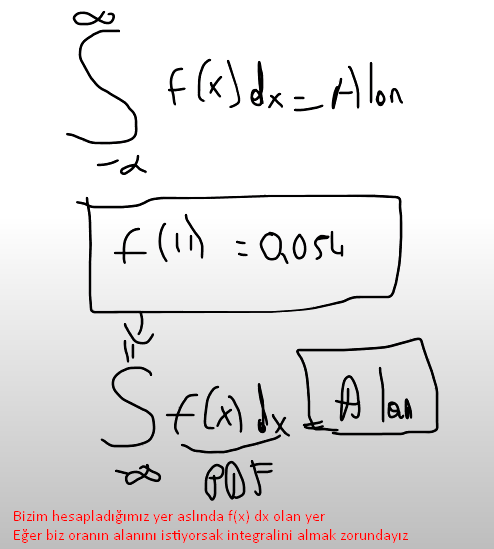 ∞
∫ f(x) dx = Alan
-∞
f(11) = 0,054
11
∫ f(x) dx = Alan
-∞
PDF
Bizim hesapladığımız yer aslında f(x) dx olan yer
Eğer biz oranın alanını istiyorsak integralini almak zorundayız